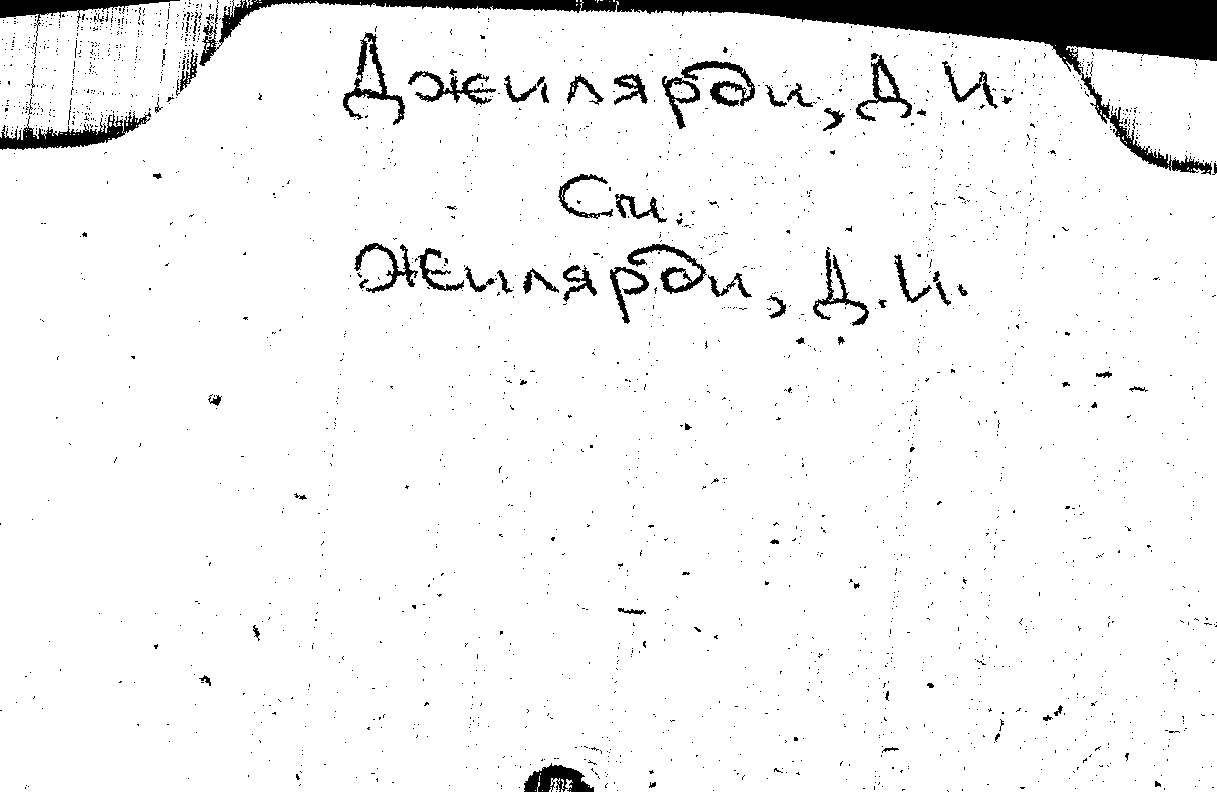 Джилярди, Д. И.
См.
Жилярди, Д. И.